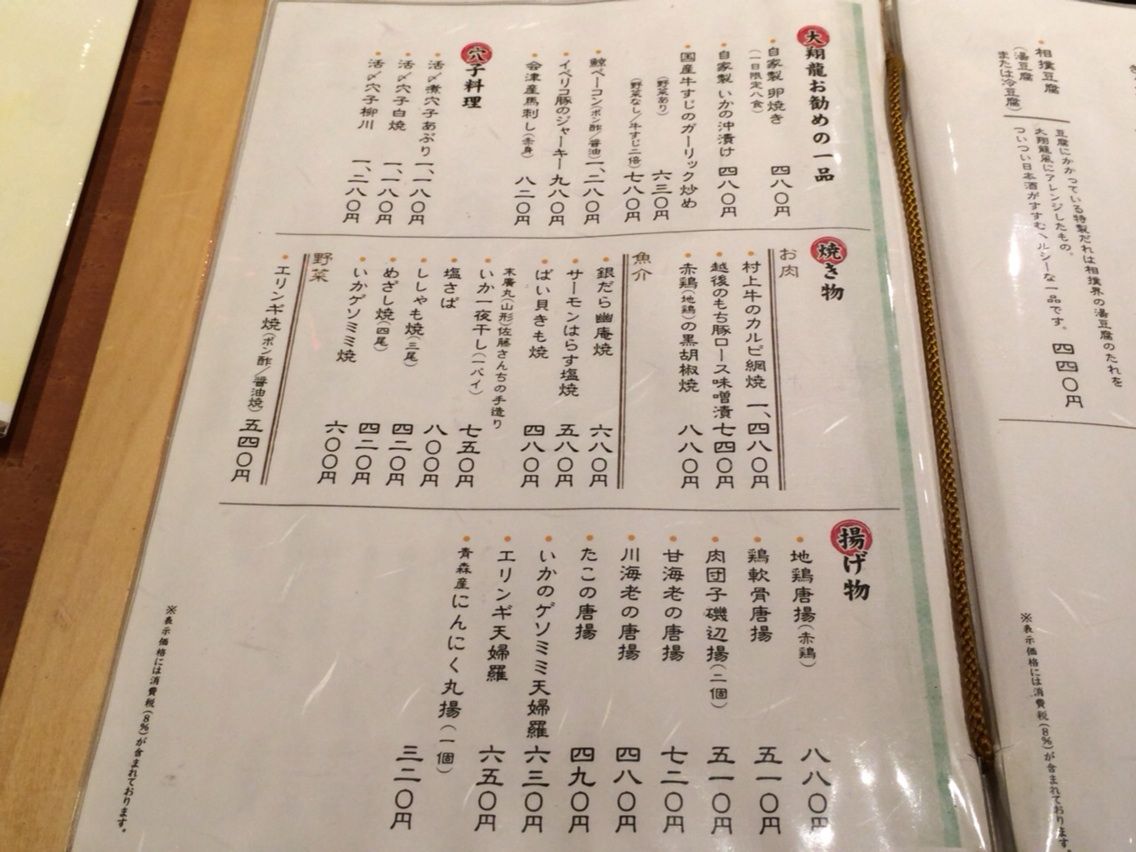 相撲豆腐
(湯豆腐
または冷豆腐)
豆腐にかかっている特製だれは相撲界の湯豆腐のたれを
大翔龍風にアレンジしたもの。
ついつい日本酒がすすむヘルシーな一品です。 四四〇円
※表示価格には消費税(8%)が含まれております。
大翔龍お勧めの一品
自家製 卵焼き 四八〇円
(一日限定八食)
自家製 いかの沖漬け 四八〇円
国産牛すじのガーリック炒め
(野菜あり) 六三〇円
(野菜なし/牛すじ二倍) 七八〇円
鯨ベーコン(ポン酢/醤油) 一、二八〇円
イベリコ豚のジャーキー 九八〇円
会津産馬刺し(赤身) 八二〇円
穴子料理
活〆煮穴子あぶり 一、一八〇円
活〆穴子白焼 一、一八〇円
活〆穴子柳川 一、二八〇円
焼き物
お肉
村上牛のカルビ網焼 一、四八〇円
越後のもち豚ロース味噌漬 七四〇円
赤鶏(地鶏)の黒胡椒焼 八八〇円
魚介
銀だら幽庵焼 六八〇円
サーモンはらす塩焼 五八〇円
ばい貝きも焼 四八〇円
末廣丸(山形)佐藤さんちの手造り
いか一夜干し(一パイ) 七五〇円
塩さば 八〇〇円
ししゃも焼(三尾) 四二〇円
めざし焼(四尾) 四二〇円
いかゲソミミ焼 六〇〇円
野菜
エリンギ焼(ポン酢/醤油焼) 五四〇円
揚げ物
地鶏唐揚(赤鶏) 八八〇円
鶏軟骨唐揚 五一〇円
肉団子磯辺揚(二個) 五一〇円
甘海老の唐揚 七二〇円
川海老の唐揚 四八〇円
たこの唐揚 四九〇円
いかのゲソミミ天婦羅 六三〇円
エリンギ天婦羅 六五〇円
青森産にんにく丸揚(一個) 三二〇円
※表示価格には消費税(8%)が含まれております。